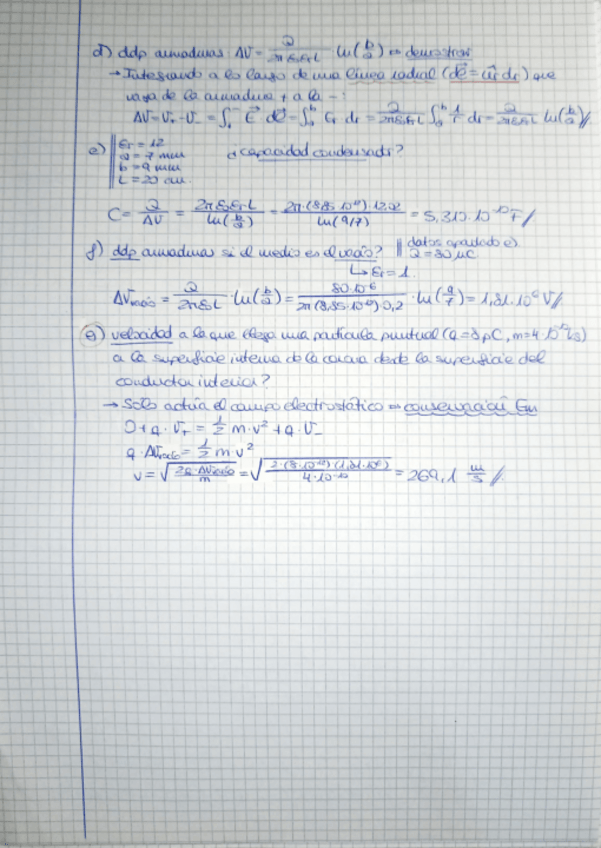 d) ddp armaduras ΔV = Q / 2πε₀εrL · ln(b/a) ⇒ demostrar
→ Integrando a lo largo de una línea radial (dl = ur dr) que
vaya de la armadura + a la - :
ΔV = V₊ - V₋ = ∫₊⁻ E · dl = ∫ₐᵇ Er dr = Q / 2πε₀εrL ∫ₐᵇ 1/r dr = Q / 2πε₀εrL ln(b/a) //
e) εr = 12 ¿capacidad condensador?
a = 7 mm
b = 9 mm
L = 20 cm.
C = Q / ΔV = 2πε₀εrL / ln(b/a) = 2π·(8,85·10⁻¹²)·12·0,2 / ln(9/7) = 5,310·10⁻¹⁰ F //
f) ddp armaduras si el medio es el vacío? datos apartado e)
Q = 80 μC
↳ εr = 1.
ΔVvacío = Q / 2πε₀L · ln(b/a) = 80·10⁻⁶ / 2π(8,85·10⁻¹²)0,2 · ln(9/7) = 1,81·10⁶ V //
g) velocidad a la que llega una partícula puntual (q = 8 pC, m = 4·10⁻¹⁰ kg)
a la superficie interna de la corona desde la superficie del
conductor interior?
→ Solo actúa el campo electrostático ⇒ conservación Em
0 + q · V₊ = 1/2 m · v² + q · V₋
q · ΔVvacío = 1/2 m · v²
v = √(2q · ΔVvacío / m) = √(2·(8·10⁻¹²)·(1,81·10⁶) / 4·10⁻¹⁰) = 269,1 m/s //